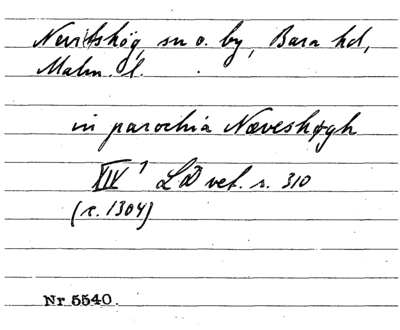 Nevitshög, sn o. by, Bara hd,
Malm. l.
in parochia Næveshøgh
XIV 1 LD vet. s. 310
(c. 1304)
Nr 5540.